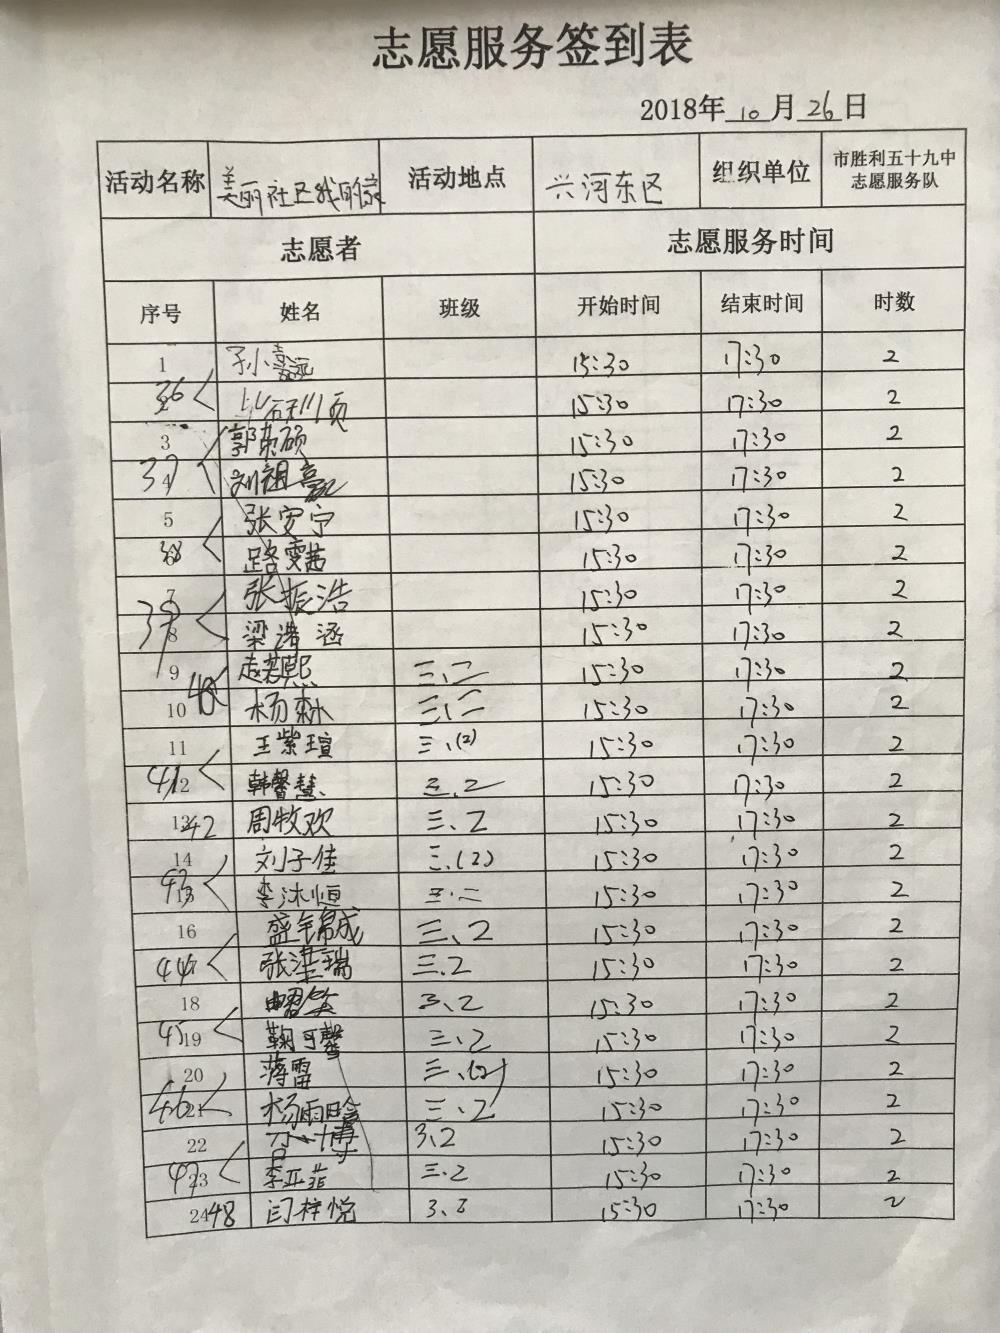 志愿服务签到表
2018年10月26日
活动名称 美丽社区我的家 活动地点 兴河东区 组织单位 市胜利五十九中志愿服务队
志愿者 志愿服务时间
序号 姓名 班级 开始时间 结束时间 时数
1 孙小嘉远 15:30 17:30 2
36 15:30 17:30 2
3 郭荣硕 15:30 17:30 2
37 4 刘祖赢 15:30 17:30 2
5 张安宁 15:30 17:30 2
38 6 路雯茜 15:30 17:30 2
7 张振浩 15:30 17:30 2
39 8 梁浩涵 15:30 17:30 2
9 赵若熙 三、二 15:30 17:30 2
40 10 杨森 三、二 15:30 17:30 2
11 王紫瑄 三、(2) 15:30 17:30 2
41 12 韩馨慧 三、2 15:30 17:30 2
13 42 周牧欢 三、2 15:30 17:30 2
14 刘子佳 三、(2) 15:30 17:30 2
43 15 李沐恒 三、二 15:30 17:30 2
16 盛锦成 三、2 15:30 17:30 2
44 17 张瑞 三、2 15:30 17:30 2
18 笑 3、2 15:30 17:30 2
45 19 鞠可馨 三、2 15:30 17:30 2
20 蒋雷 三、(2) 15:30 17:30 2
46 21 杨雨晗 三、2 15:30 17:30 2
22 博 3、2 15:30 17:30 2
47 23 李亚菲 三、2 15:30 17:30 2
24 48 闫梓悦 3、2 15:30 17:30 2